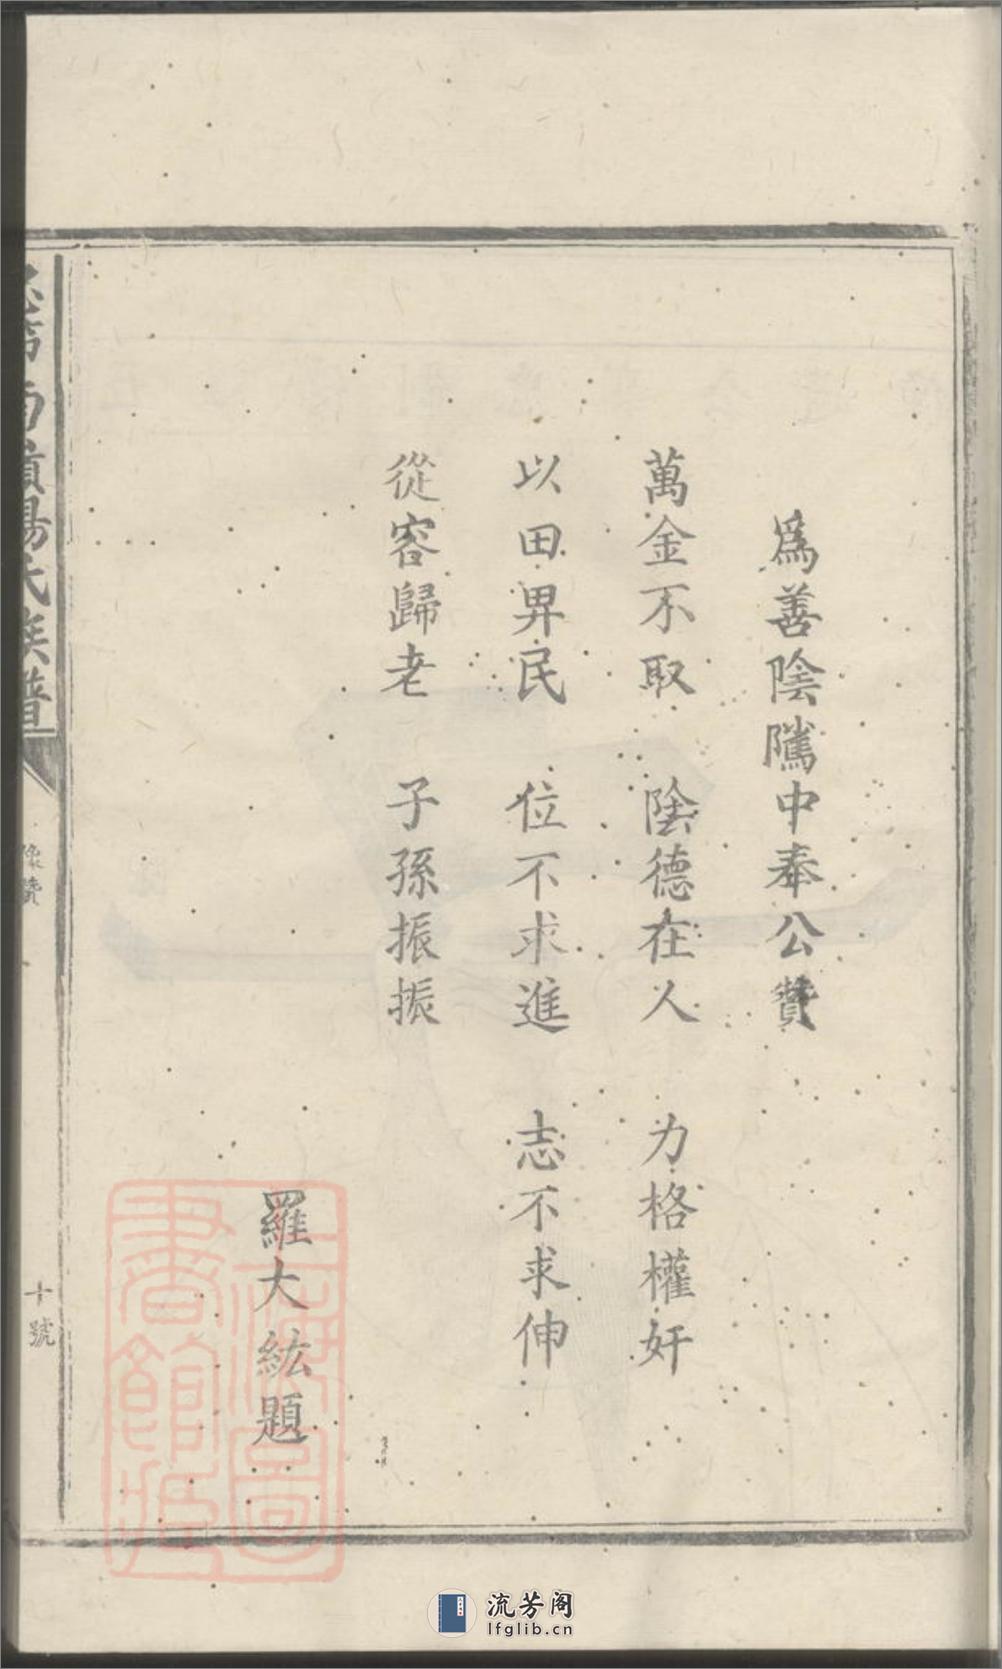 爲善陰隲中奉公贊
萬金不取 陰德在人 力格權奸
以田畀民 位不求進 志不求伸
從容歸老 子孫振振
羅大紘題
氏族譜
像贊
十號
上海圖書館藏
流芳阁
lfglib.cn